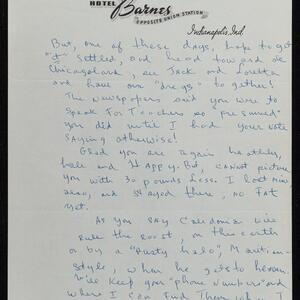 HOTEL Barnes
OPPOSITE UNION STATION
Indianapolis, Ind.
But, one of these days, hope to get
settled, and head toward ole
Chicagoland, see Jack and Loretta
and have our "dregs" together!
The newspapers said you were to
Speak For Teachers so presumed
you did until I had your note
saying otherwise!
Glad you are again healthy,
hale and Happy. But, cannot picture
you with 30 pounds less. I lost mine
ago, and stayed there, no Fat
yet.
As you say Caledonia will
rule the roost, on the earth
or by a "rusty halo", Martian-
style, when he gets to heaven.
Will keep your "phone numbers" and
where I can find them when I